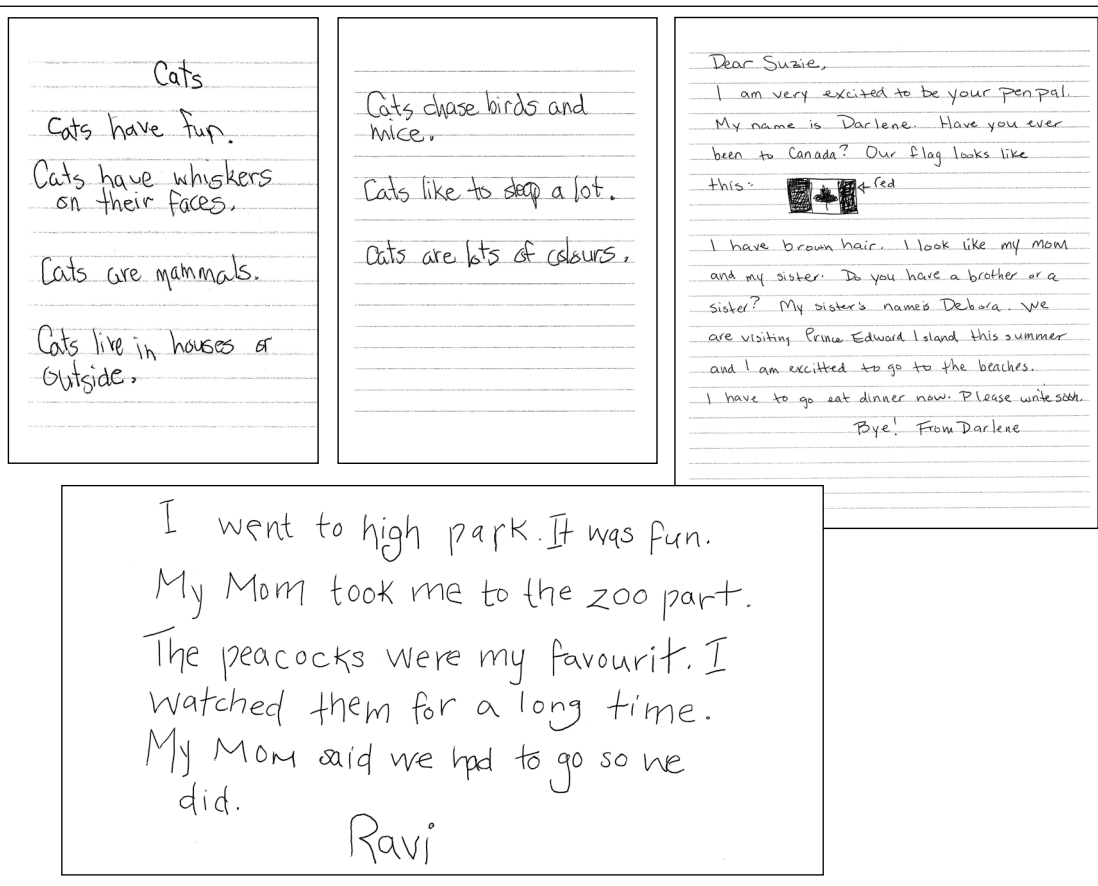 Cats
Cats have fun.
Cats have whiskers
on their faces.
Cats are mammals.
Cats live in houses or
outside.
Cats chase birds and
mice.
Cats like to sleep a lot.
Cats are lots of colours.
Dear Suzie,
I am very excited to be your penpal.
My name is Darlene. Have you ever
been to Canada? Our flag looks like
this:
red
I have brown hair. I look like my mom
and my sister. Do you have a brother or a
sister? My sister's name's Debora. We
are visiting Prince Edward Island this summer
and I am excitted to go to the beaches.
I have to go eat dinner now. Please write soon.
Bye! From Darlene
I went to high park. It was fun.
My Mom took me to the zoo part.
The peacocks were my favourit. I
watched them for a long time.
My Mom said we had to go so we
did.
Ravi